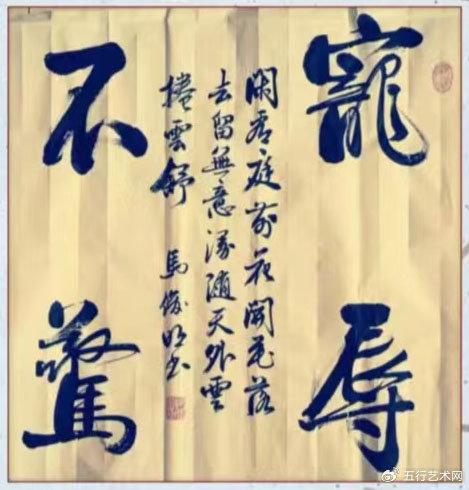 寵辱
不驚
閑看庭前花開花落
去留無意漫随天外雲
捲雲舒 馬俊明书
五行艺术网